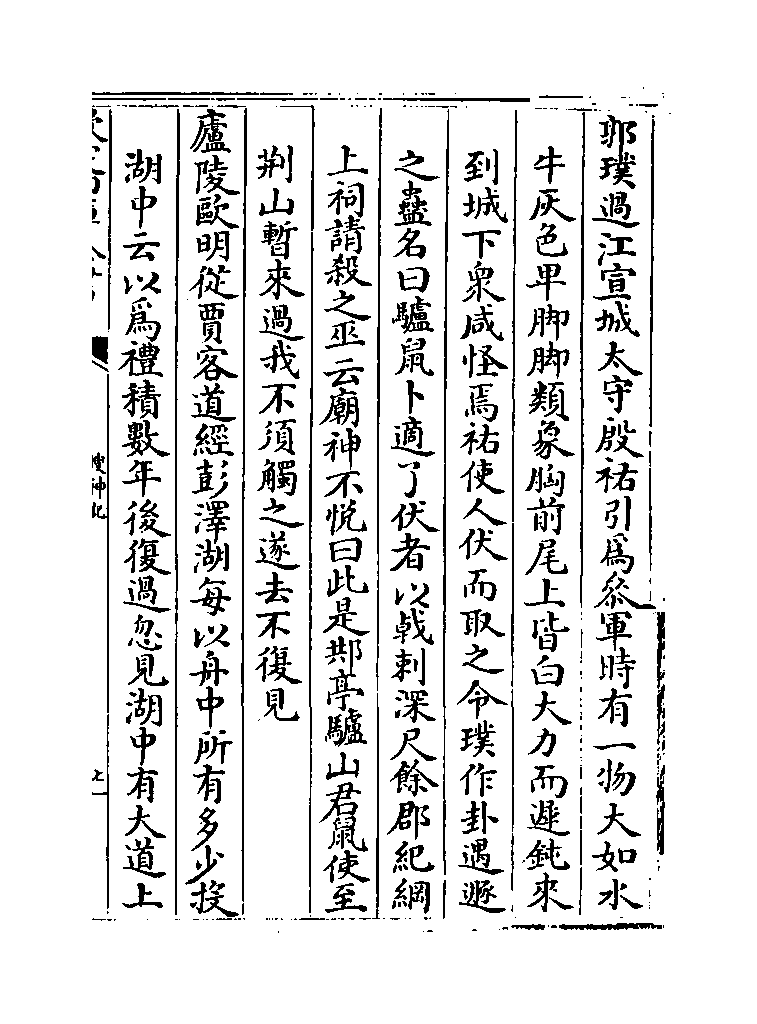 郭璞過江宣城太守殷祐引爲叅軍時有一物大如水
牛灰色卑脚脚類象胸前尾上皆白大力而遲鈍來
到城下衆咸怪焉祐使人伏而取之令璞作卦遇遯
之蠱名曰驢鼠卜適了伏者以戟刺深尺餘郡紀綱
上祠請殺之巫云廟神不悅曰此是䢼亭驢山君鼠使至
荆山暫來過我不須觸之遂去不復見
廬陵歐明從賈客道經彭澤湖每以舟中所有多少投
湖中云以爲禮積數年後復過忽見湖中有大道上
搜神記